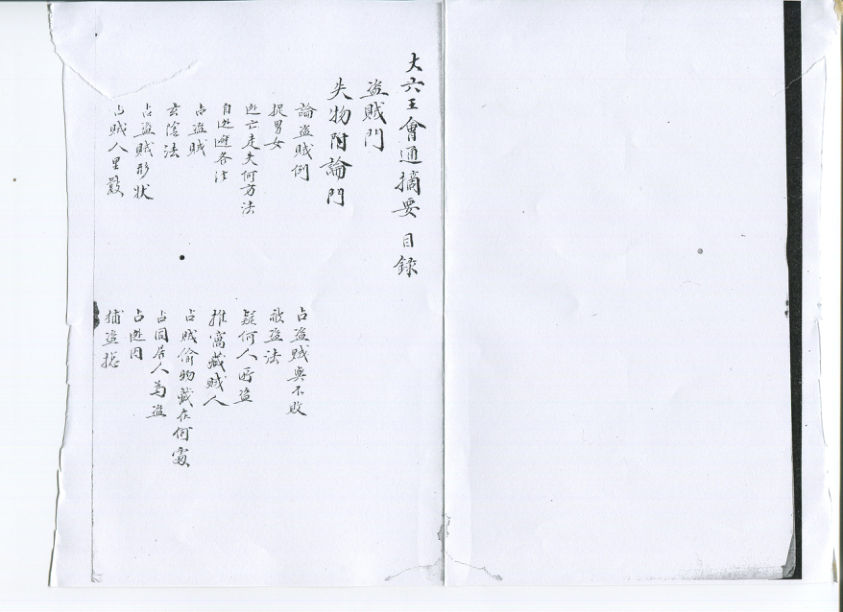 大六壬會通摘要 目錄
盜賊門
失物附論門
論盜賊例
捉男女
逃亡走失何方法
自逃避各法
占盜賊
玄陰法
占盜賊形狀
占賊人里數
占盜賊與不敗
敗盜法
疑何人所盜
推窩藏賊人
占賊偷物藏在何處
占同居人為盜
占逃囚
捕盜